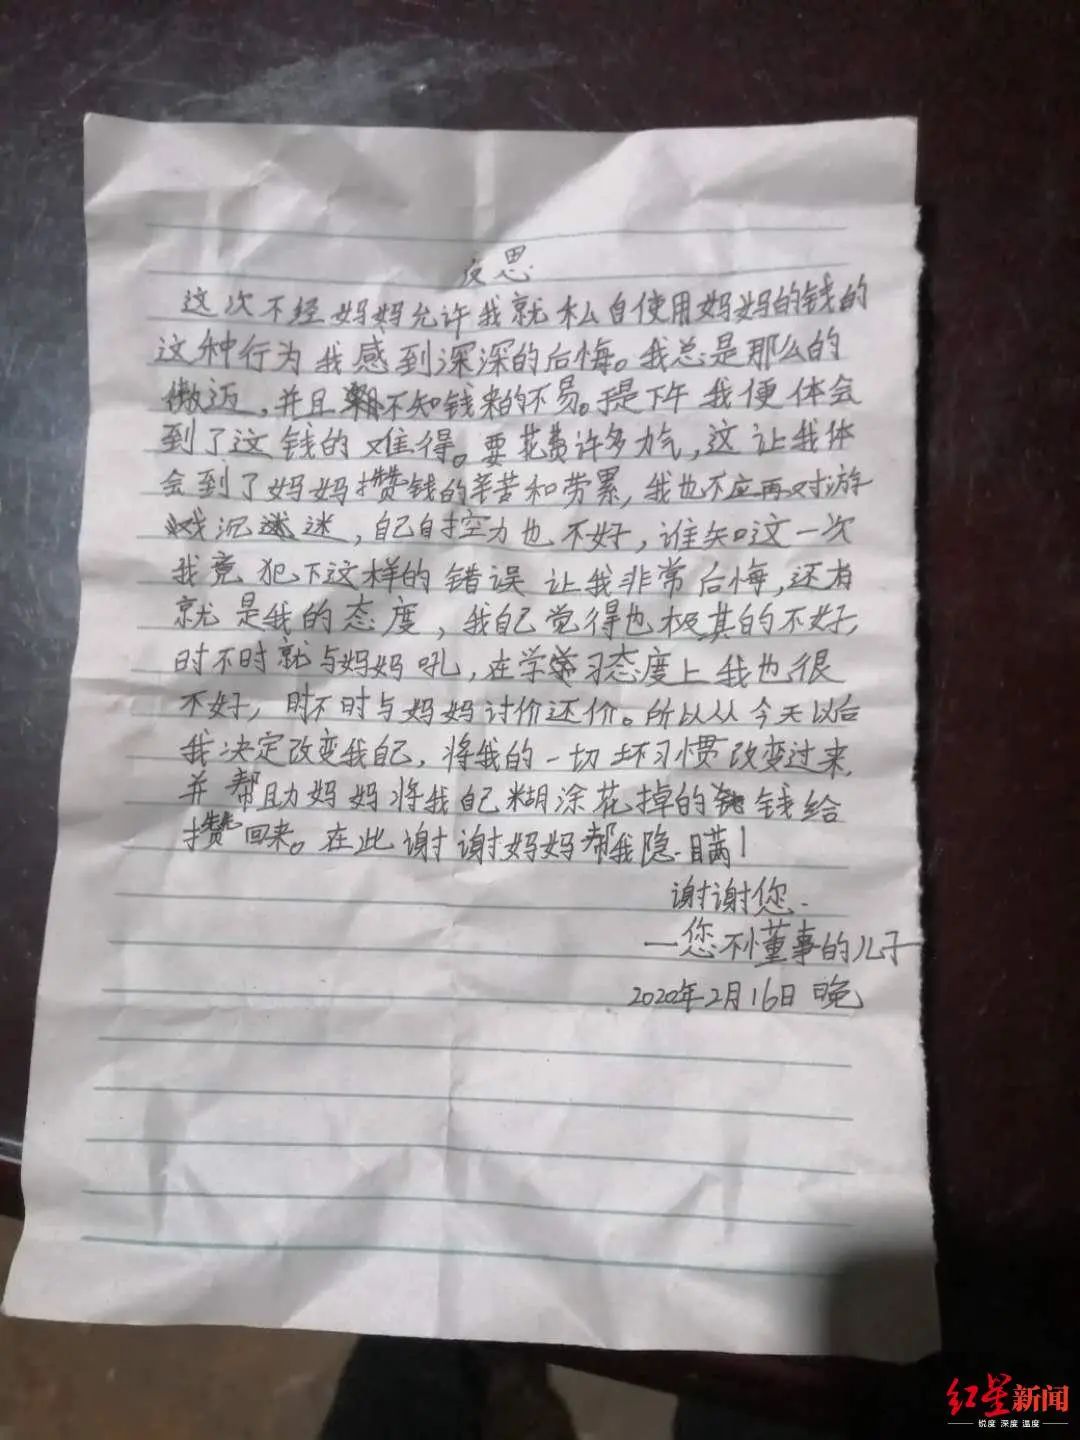 反思
这次不经妈妈允许我就私自使用妈妈的钱的
这种行为我感到深深的后悔。我总是那么的
傲迈，并且不知钱来的不易。是下午我便体会
到了这钱的难得。要花费许多力气，这让我体
会到了妈妈攒钱的辛苦和劳累，我也不应再对游
戏沉迷，自己自控力也不好，谁知这一次
我竟犯下这样的错误让我非常后悔，还有
就是我的态度，我自己觉得也极其的不好，
时不时就与妈妈吼，在学习态度上我也很
不好，时不时与妈妈讨价还价。所以从今天以后
我决定改变我自己，将我的一切坏习惯改变过来，
并帮助妈妈将我自己糊涂花掉的钱给
攒回来。在此谢谢妈妈帮我隐瞒！
谢谢您.
—您不懂事的儿子
2020年2月16日 晚
红星新闻
锐度 深度 温度